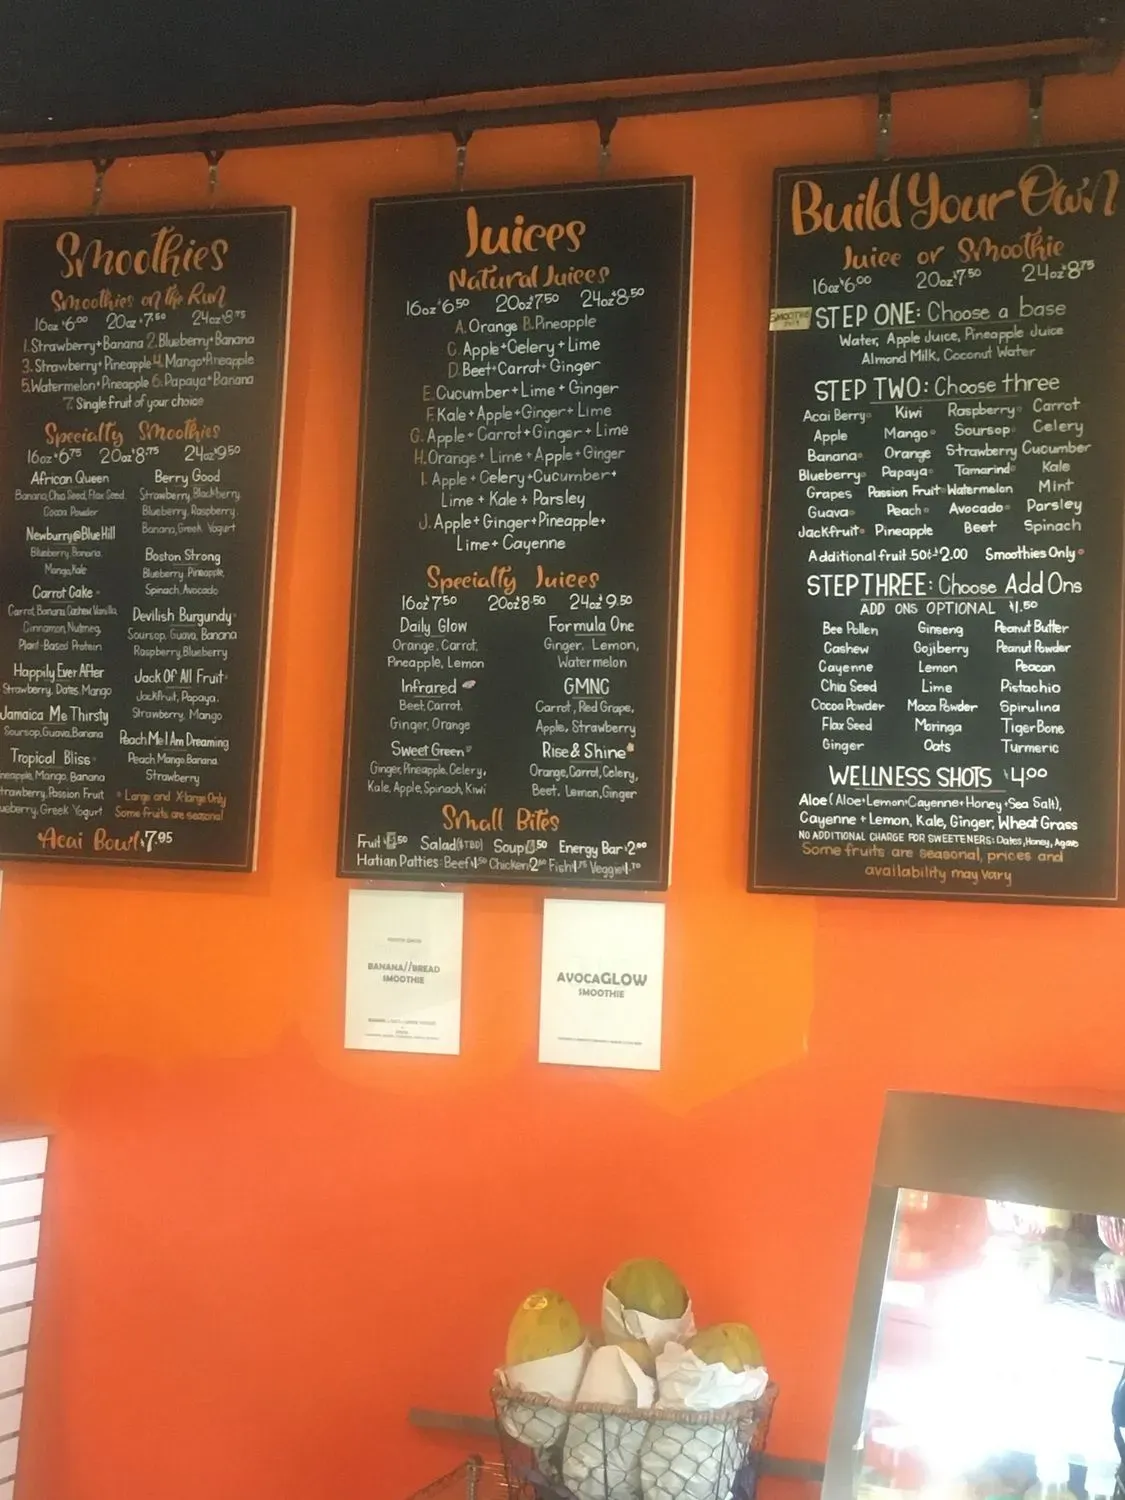 Smoothies
Smoothies on the Run
16oz $6.00 20oz $7.50 24oz $8.75
1. Strawberry+Banana 2. Blueberry+Banana
3. Strawberry+Pineapple 4. Mango+Pineapple
5. Watermelon+Pineapple 6. Papaya+Banana
7. Single fruit of your choice
Specialty Smoothies
16oz $6.75 20oz $8.75 24oz $9.50
African Queen
Banana, Chia Seed, Flax Seed,
Cocoa Powder
Newbury@Blue Hill
Blueberry, Banana,
Mango, Kale
Carrot Cake
Carrot, Banana, Cashew, Vanilla,
Cinnamon, Nutmeg,
Plant-Based Protein
Happily Ever After
Strawberry, Dates, Mango
Jamaica Me Thirsty
Soursop, Guava, Banana
Tropical Bliss
Mango, Banana
Passion Fruit
Greek Yogurt
Berry Good
Strawberry, Blackberry,
Blueberry, Raspberry,
Banana, Greek Yogurt
Boston Strong
Blueberry, Pineapple,
Spinach, Avocado
Devilish Burgundy
Soursop, Guava, Banana
Raspberry, Blueberry
Jack Of All Fruit
Jackfruit, Papaya,
Strawberry, Mango
Peach Me I Am Dreaming
Peach, Mango, Banana
Strawberry
Large and X-large Only
Some fruits are seasonal
Acai Bowl $7.95
Juices
Natural Juices
16oz $6.50 20oz $7.50 24oz $8.50
A. Orange B. Pineapple
C. Apple+Celery+Lime
D. Beet+Carrot+Ginger
E. Cucumber+Lime+Ginger
F. Kale+Apple+Ginger+Lime
G. Apple+Carrot+Ginger+Lime
H. Orange+Lime+Apple+Ginger
I. Apple+Celery+Cucumber+
Lime+Kale+Parsley
J. Apple+Ginger+Pineapple+
Lime+Cayenne
Specialty Juices
16oz $7.50 20oz $8.50 24oz $9.50
Daily Glow
Orange, Carrot,
Pineapple, Lemon
Infrared
Beet, Carrot,
Ginger, Orange
Sweet Green
Ginger, Pineapple, Celery,
Kale, Apple, Spinach, Kiwi
Formula One
Ginger, Lemon,
Watermelon
GMNC
Carrot, Red Grape,
Apple, Strawberry
Rise & Shine
Orange, Carrot, Celery,
Beet, Lemon, Ginger
Small Bites
Fruit Salad (TBD) Soup Energy Bar $2.00
Haitian Patties: Beef Chicken Fish Veggie
BANANA//BREAD
SMOOTHIE
AVOCAGLOW
SMOOTHIE
Build Your Own
Juice or Smoothie
16oz $6.00 20oz $7.50 24oz $8.75
STEP ONE: Choose a base
Water, Apple Juice, Pineapple Juice
Almond Milk, Coconut Water
STEP TWO: Choose three
Acai Berry Kiwi Raspberry Carrot
Apple Mango Soursop Celery
Banana Orange Strawberry Cucumber
Blueberry Papaya Tamarind Kale
Grapes Passion Fruit Watermelon Mint
Guava Peach Avocado Parsley
Jackfruit Pineapple Beet Spinach
Additional fruit 50¢-$2.00 Smoothies Only
STEP THREE: Choose Add Ons
ADD ONS OPTIONAL $1.50
Bee Pollen Ginseng Peanut Butter
Cashew Gojiberry Peanut Powder
Cayenne Lemon Peacan
Chia Seed Lime Pistachio
Cocoa Powder Maca Powder Spirulina
Flax Seed Moringa Tiger Bone
Ginger Oats Turmeric
WELLNESS SHOTS $4.00
Aloe (Aloe+Lemon+Cayenne+Honey+Sea Salt),
Cayenne+Lemon, Kale, Ginger, Wheat Grass
NO ADDITIONAL CHARGE FOR SWEETENERS: Dates, Honey, Agave
Some fruits are seasonal, prices and
availability may vary